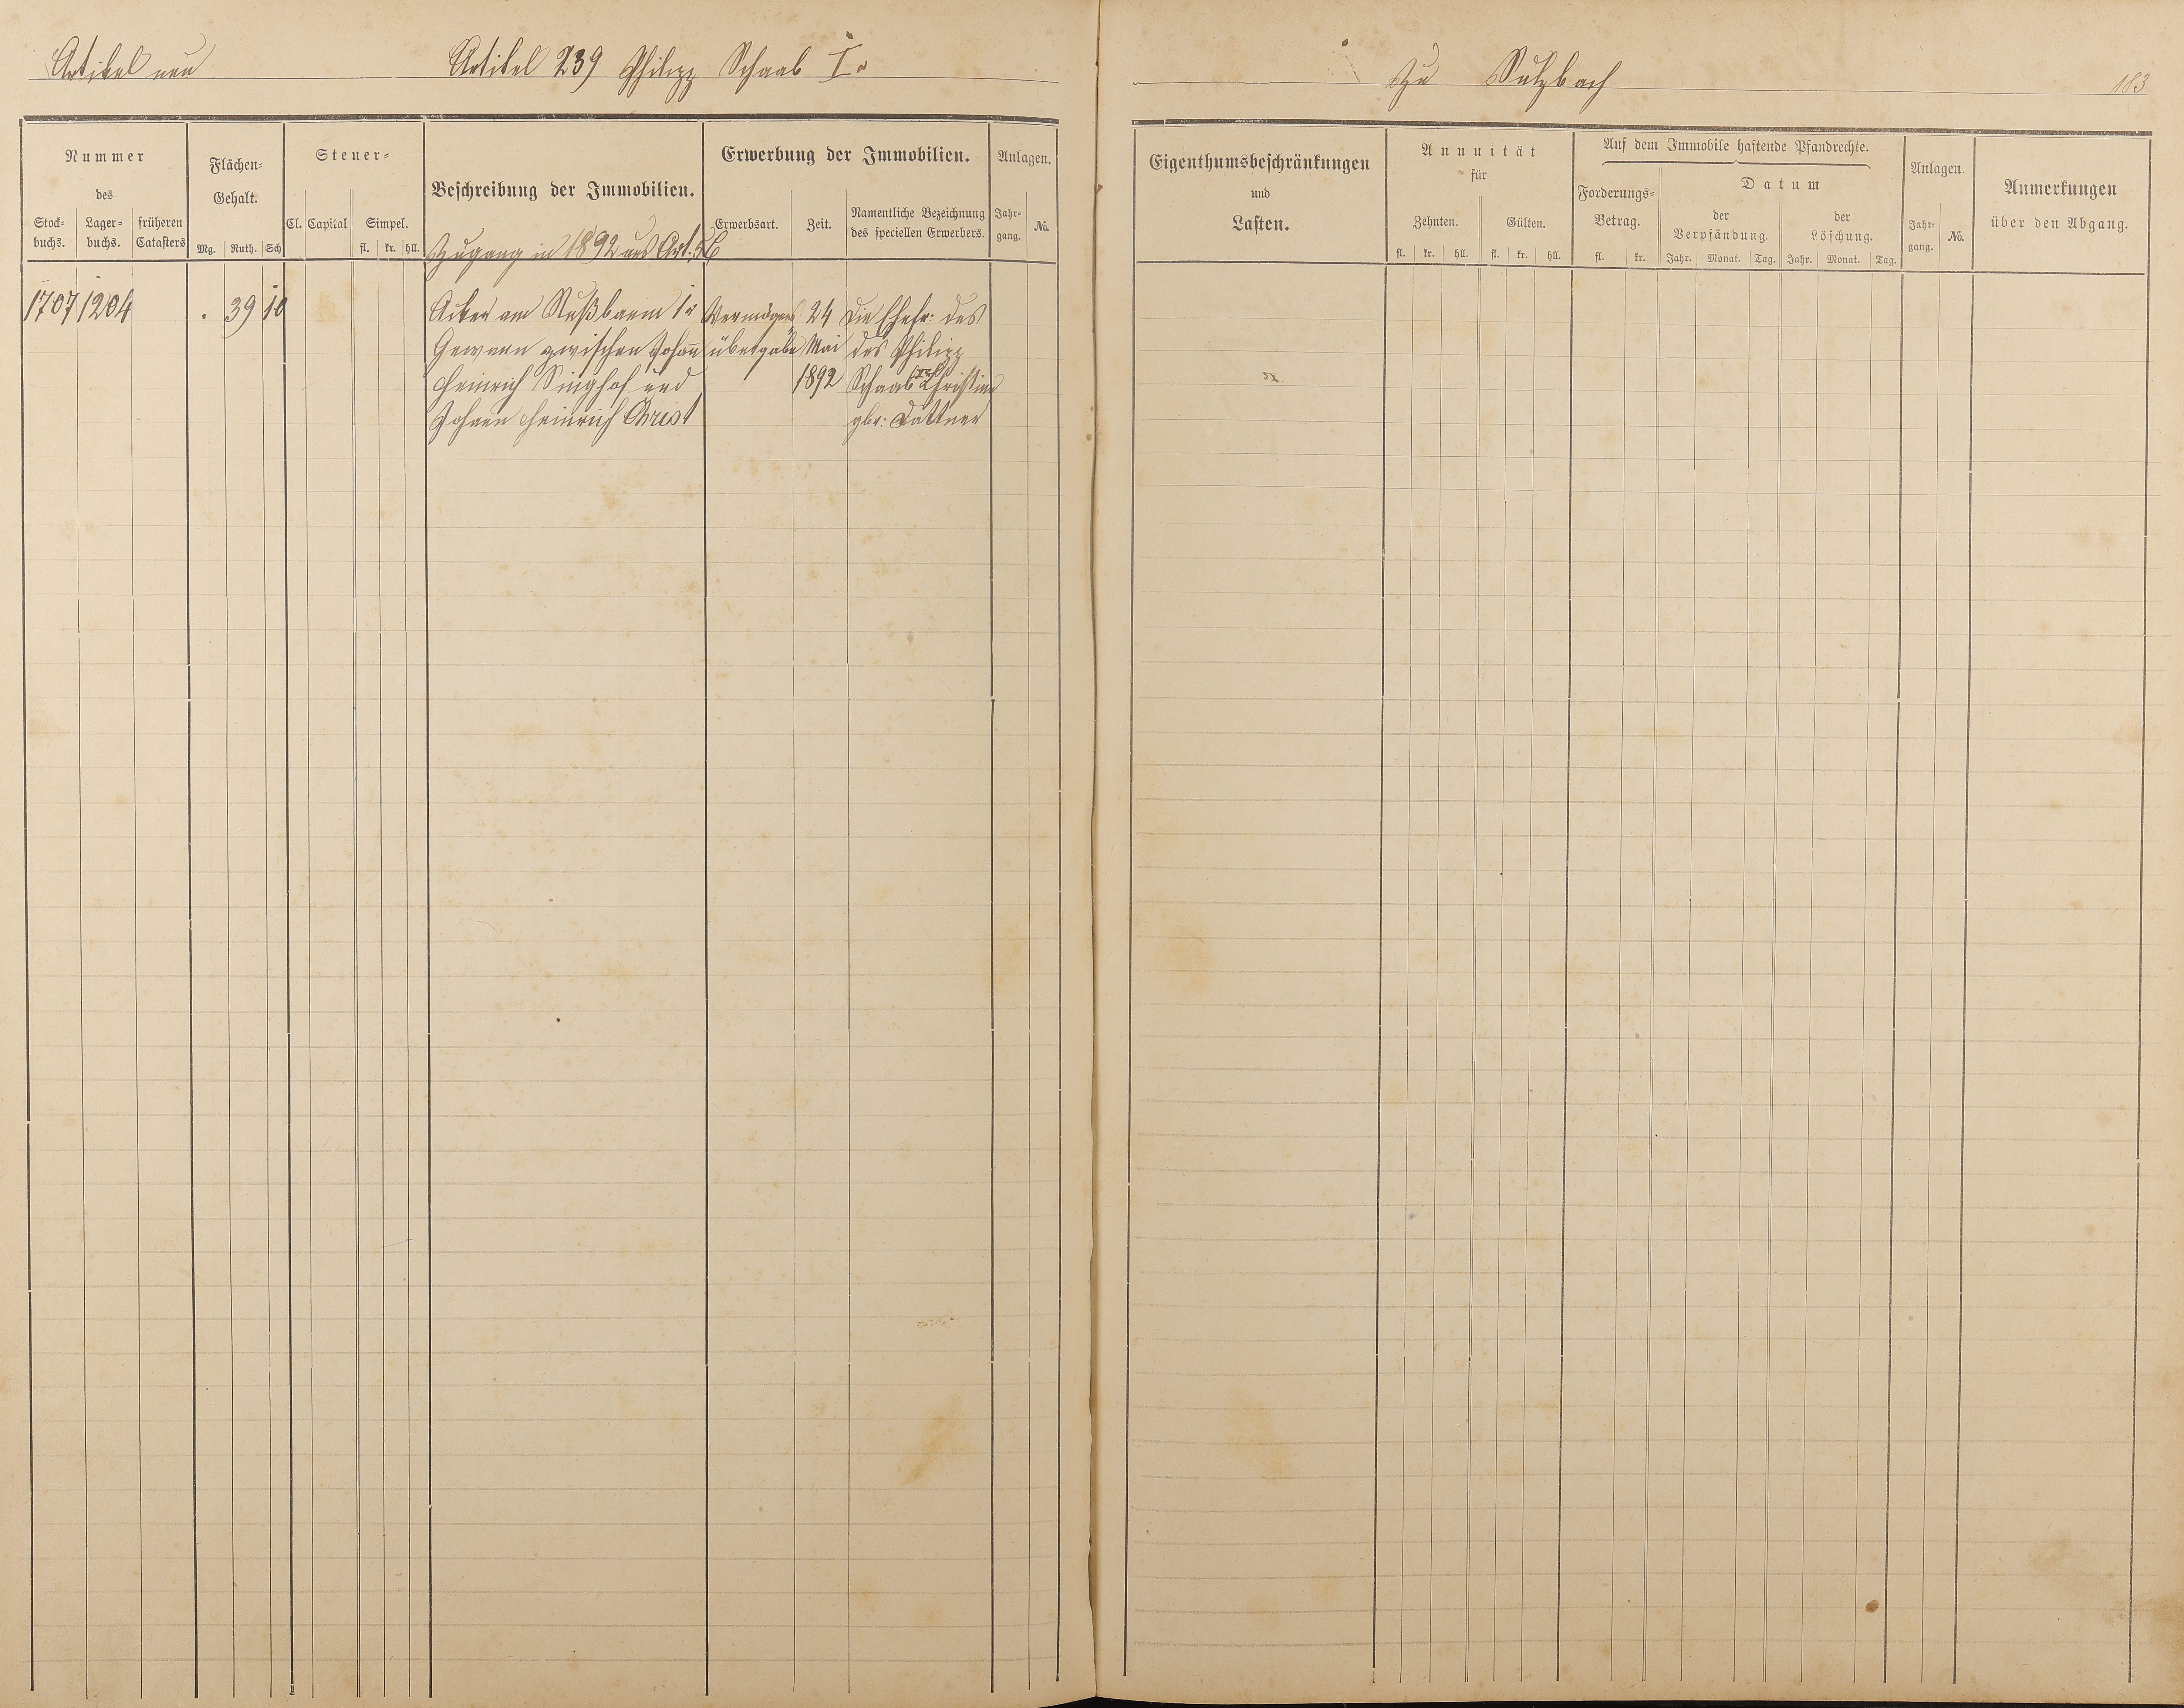 Artikel neu
Artikel 239 Philipp Schaab I.
zu Sulzbach
183
Nummer
des
Stock-
buchs.
Lager-
buchs.
früheren
Catasters
Flächen-
Gehalt.
Mg. Ruth. Sch
Steuer-
Cl. Capital Simpel.
fl. kr. hll.
Beschreibung der Immobilien.
Zugang in 1892 aus Art. 56
Erwerbung der Immobilien.
Erwerbsart. Zeit.
Namentliche Bezeichnung
des speciellen Erwerbers.
Anlagen.
Jahr-
gang.
No.
1707 1204 . 39 10
Acker am Nußbaum 1r
Gewann zwischen Johann
Heinrich Singhof und
Johann Heinrich Christ
Vermögens
übergabe
24
Mai
1892
Die Ehefr: des
des Philipp
Schaab Ir Christine
gbr: Dattner
Eigenthumsbeschränkungen
und
Lasten.
Annuität
für
Zehnten. Gülten.
fl. kr. hll. fl. kr. hll.
Auf dem Immobile haftende Pfandrechte.
Forderungs-
Betrag.
fl. kr.
Datum
der
Verpfändung.
Jahr. Monat. Tag.
der
Löschung.
Jahr. Monat. Tag.
Anlagen.
Jahr-
gang.
No.
Anmerkungen
über den Abgang.